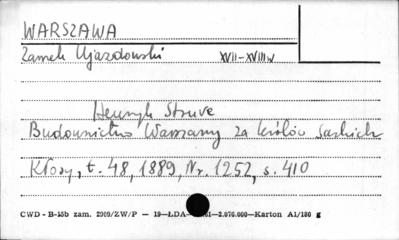 WARSZAWA
Zamek Ujazdowski XVII-XVIII w
Henryk Struve
Budownictwo Warszawy za królów Saskich
Kłosy, t. 48, 1889, Nr. 1252, s. 410
CWD - B-15b zam. 2909/ZW/P — 19—ŁDA— 61—2.076.000—Karton A1/180 g